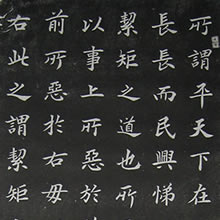 所謂平天下在
長長而民興悌
絜矩之道也所
以事上所惡於
前所惡於右毋
右此之謂絜矩